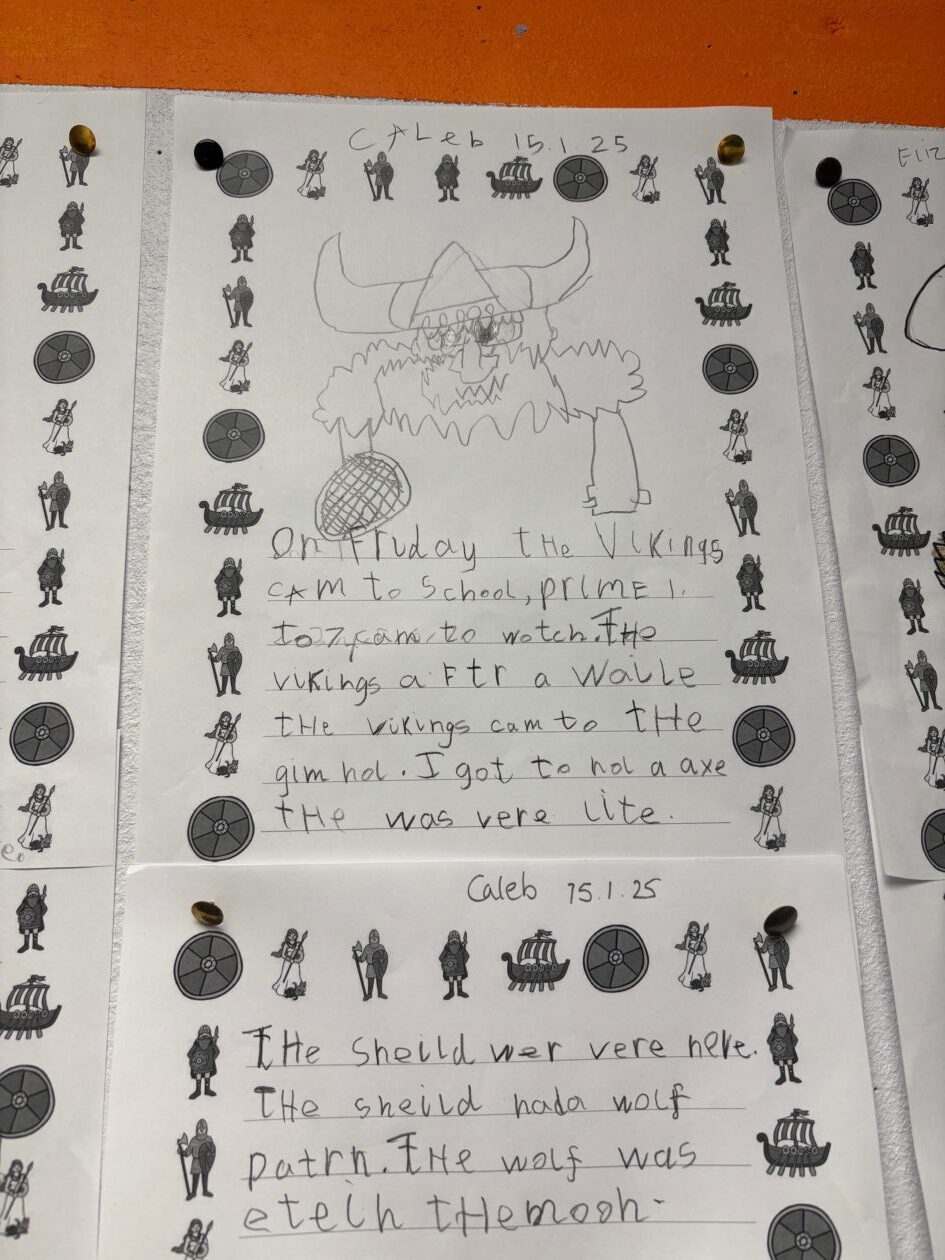 CALeb 15.1.25
On Fruday tHe Vikings
cam to School, prime 1.
to 7, cam to wotch. THe
vikings a Ftr a Waile
tHe vikings cam to tHe
gim hol. I got to hol a axe
tHe was vere lite.
Caleb 15.1.25
THe Sheild wer vere heve.
THe sheild hada wolf
patrn. THe wolf was
eteih tHemooh.
Eliz